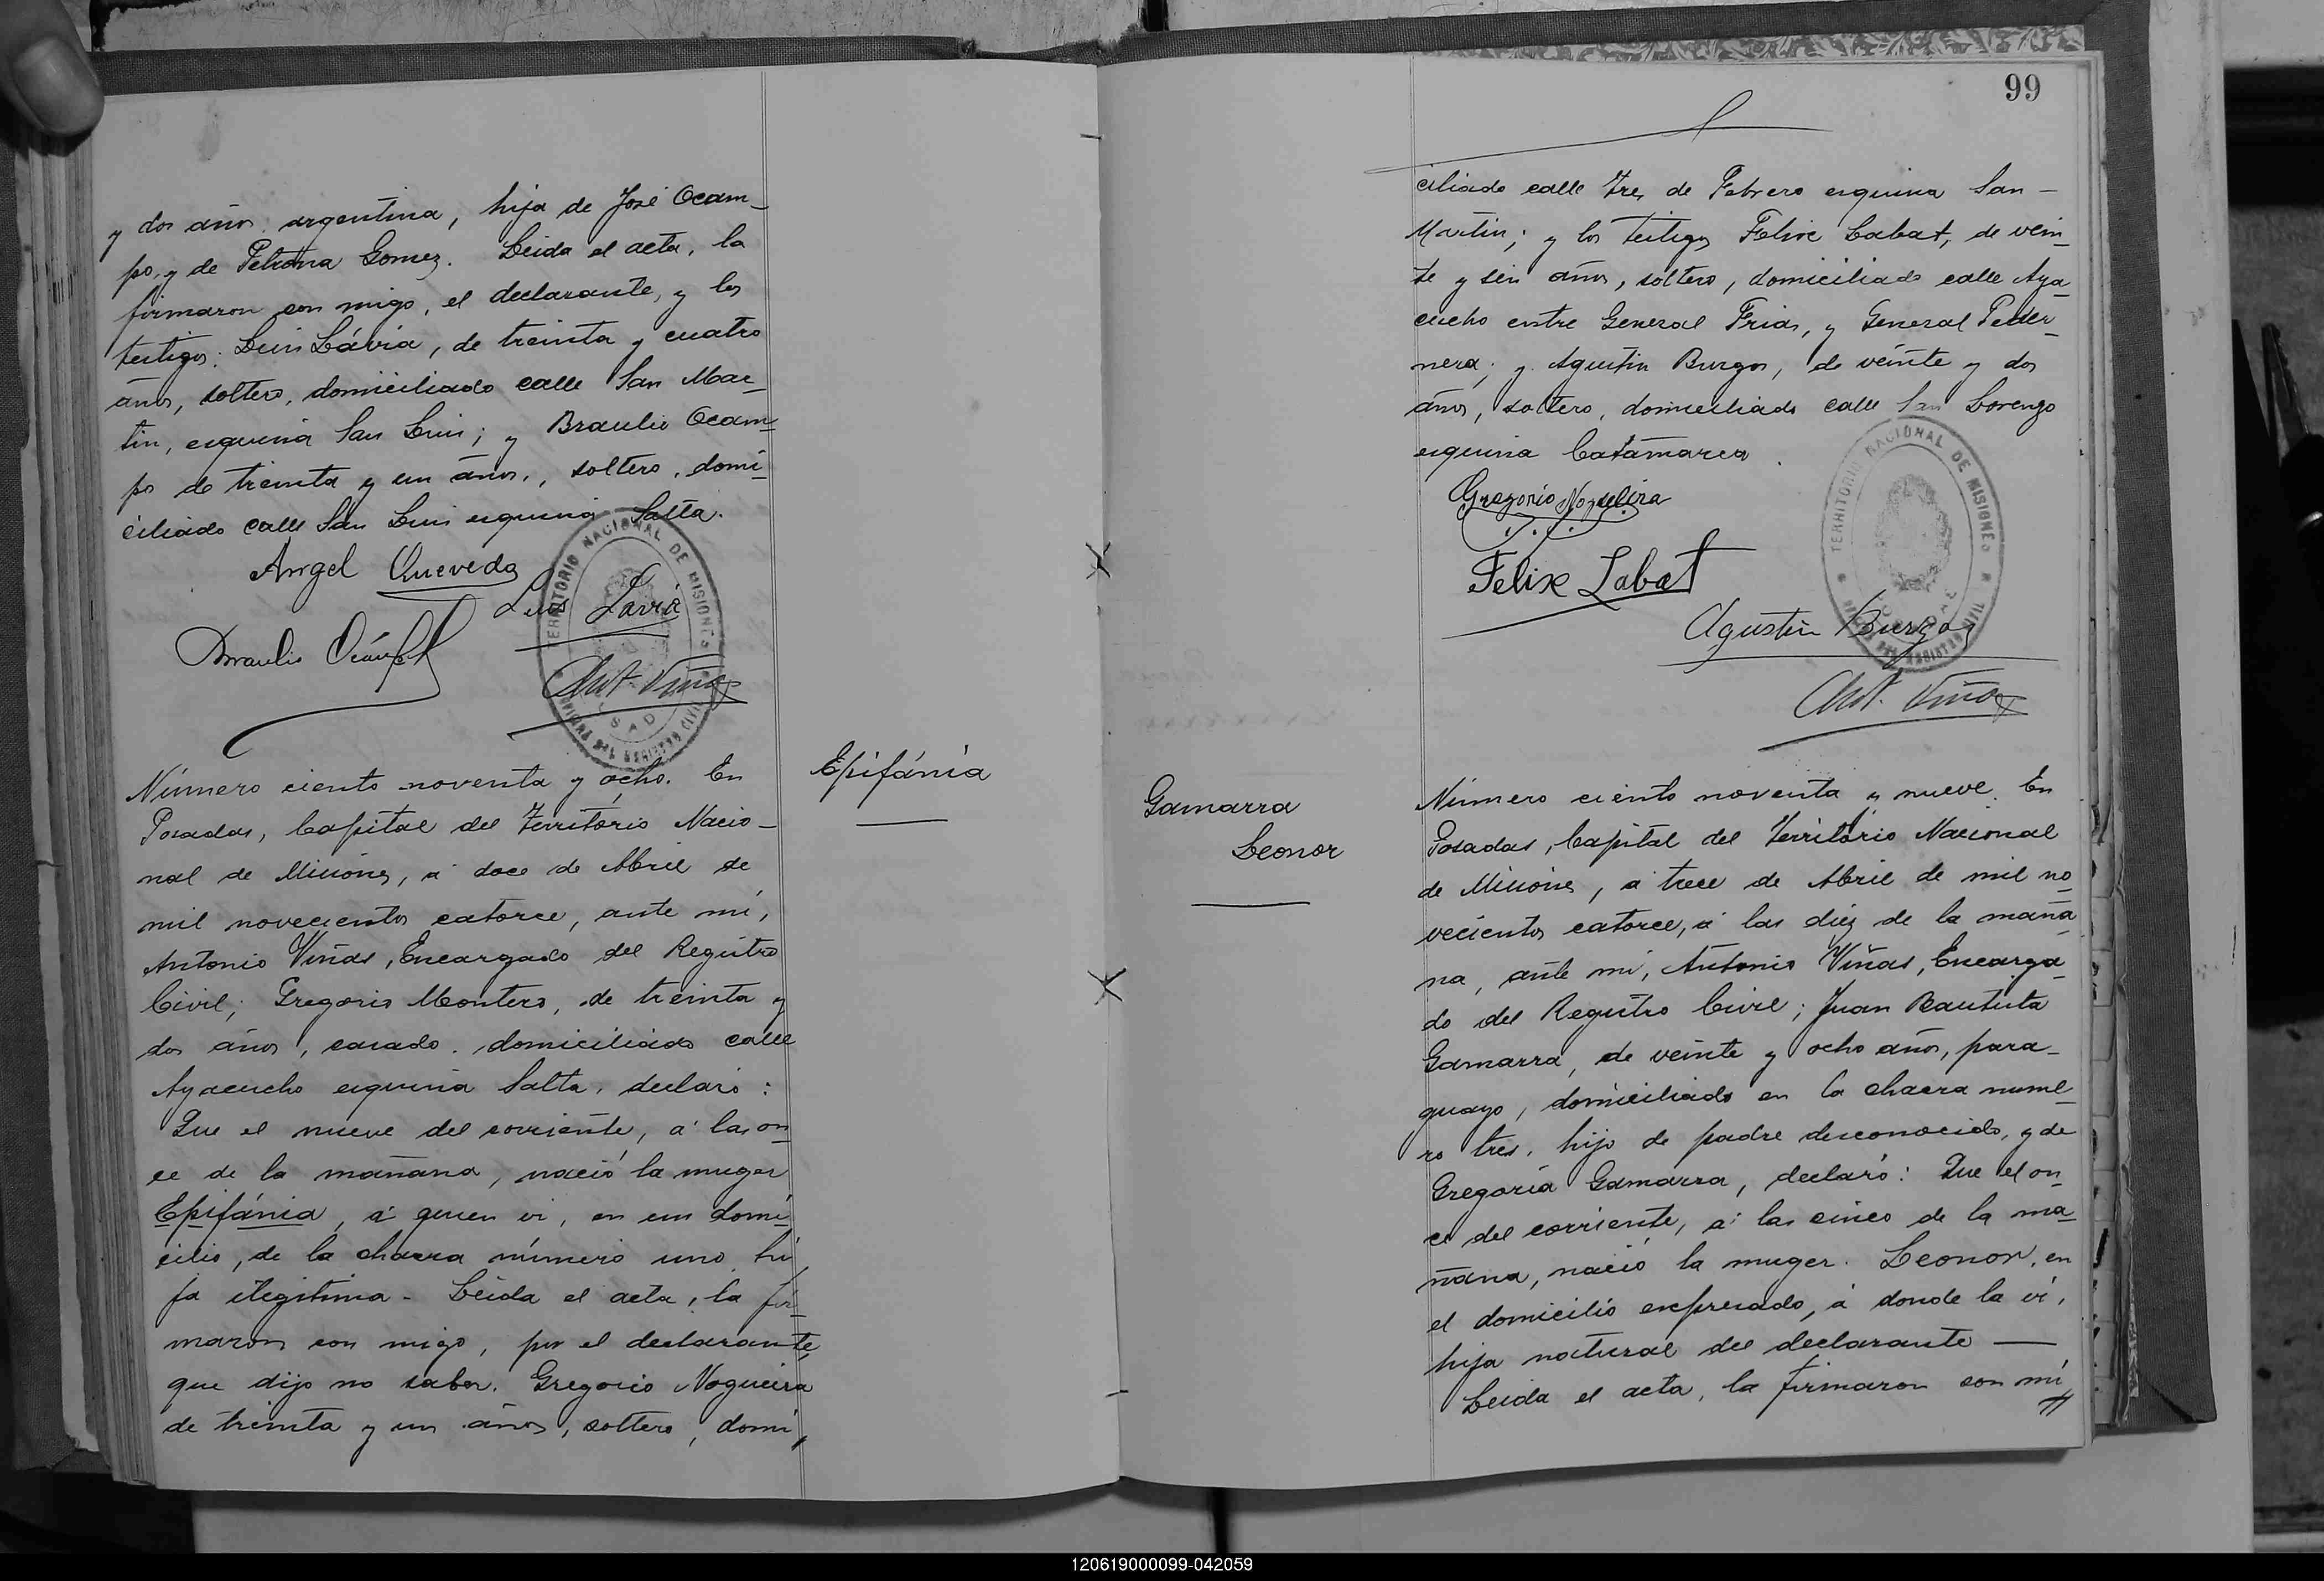 y dos años, argentina, hija de José Ocam-
po, y de Petrona Gomez. Leida el acta, la
firmaron con migo, el declarante, y los
testigos: Luis Lávia, de treinta y cuatro
años, soltero, domiciliado calle San Mar-
tin, esquina San Luis; y Braulio Ocam-
po de treinta y un años, soltero, domi-
ciliado calle San Luis esquina Salta.
Angel Quevedo
Luis Lavia
Braulio Ocámpo
Ant. Viñas
TERRITORIO NACIONAL DE MISIONES
Número ciento noventa y ocho. En
Posadas, Capital del Territorio Nacio-
nal de Misiones, á doce de Abril de
mil novecientos catorce, ante mí,
Antonio Viñas, Encargado del Registro
Civil; Gregorio Montero, de treinta y
dos años, casado, domiciliado calle
Ayacucho esquina Salta, declaró:
Que el nueve del corriente, á las on-
ce de la mañana, nació la muger
Epifánia, á quien ví, en su domi-
cilio, de la chacra número uno, hi-
ja ilegitima - Leida el acta, la fir-
maron con migo, por el declarante,
que dijo no saber, Gregorio Nogueira
de treinta y un años, soltero, domi-
Epifánia
99
ciliado calle Tres de Febrero esquina San-
Martin; y los testigos Felix Labat, de vein-
te y seis años, soltero, domiciliado calle Aya-
cucho entre General Frias, y General Peder-
nera; y Agustin Burgos, de veinte y dos
años, soltero, domiciliado calle San Lorenzo
esquina Catamarca.
Gregorio Nogueira
Felix Labat
Agustin Burgos
Ant. Viñas
TERRITORIO NACIONAL DE MISIONES
Gamarra
Leonor
Número ciento noventa y nueve. En
Posadas, Capital del Territorio Nacional
de Misiones, á trece de Abril de mil no-
vecientos catorce, á las diez de la maña-
na, ante mí, Antonio Viñas, Encarga-
do del Registro Civil; Juan Bautista
Gamarra, de veinte y ocho años, para-
guayo, domiciliado en la chacra núme-
ro tres, hijo de padre desconocido, y de
Gregoria Gamarra, declaró: Que el on-
ce del corriente, á las cinco de la ma-
ñana, nació la muger Leonor, en
el domicilio expresado, á donde la ví,
hija natural del declarante —
Leida el acta, la firmaron con mi
120619000099-042059